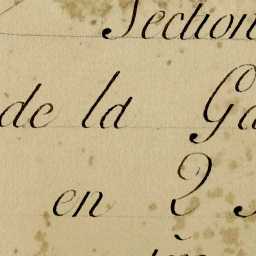 Section
de la Ga
en 2